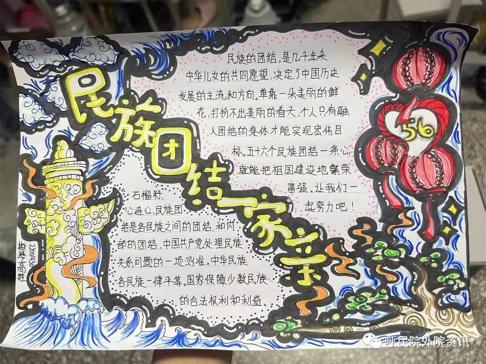 民族团结一家亲
民族的团结,是几千年来
中华儿女的共同愿望,决定了中国历史
发展的主流和方向。单靠一朵美丽的鲜
花,打扮不出美丽的春天,个人只有融
入团结的集体才能实现宏伟目
标,五十六个民族团结一条心
就能把祖国建设地繁荣
富强,让我们一
起努力吧!
56
石榴籽,
心连心,民族团
结是各民族之间的团结,和内
部的团结,中国共产党处理民族
关系问题的一项准则,中华民族
各民族一律平等,国家保障少数民族
的合法权利和利益。